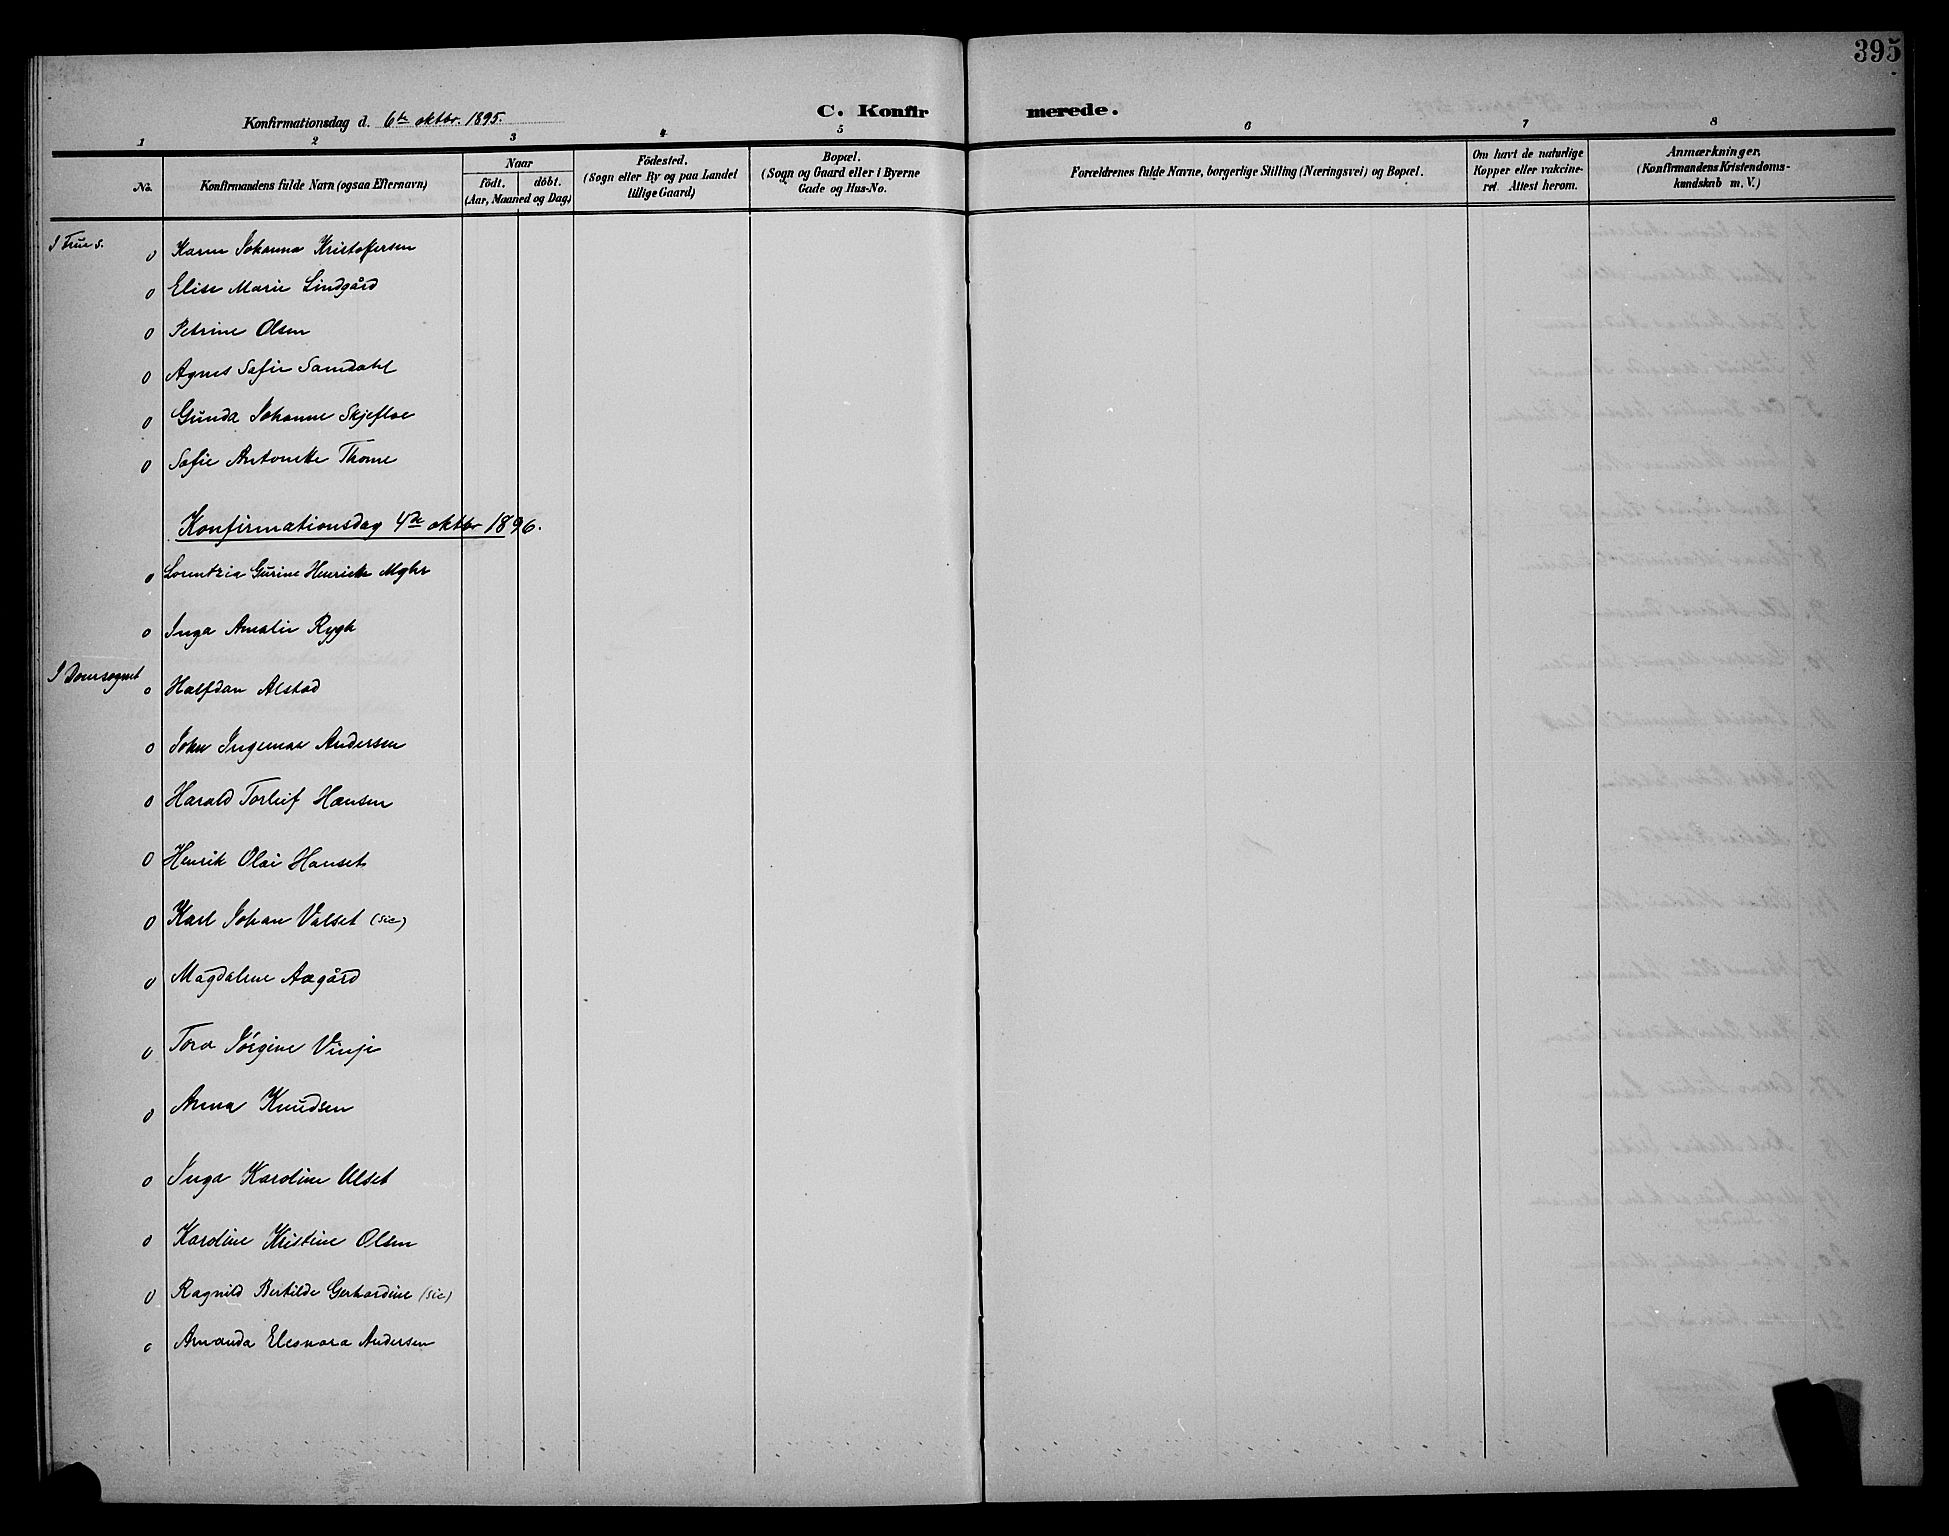 395
C. Konfirmerede.
Konfirmationsdag d. 6te oktbr. 1895.
1 2 3 4 5 6 7 8
No.
Konfirmandens fulde Navn (ogsaa Efternavn)
Naar
födt. döbt.
(Aar, Maaned og Dag)
Födested.
(Sogn eller By og paa Landet
tillige Gaard)
Bopæl.
(Sogn og Gaard eller i Byerne
Gade og Hus-No.
Forældrenes fulde Navne, borgerlige Stilling (Næringsvei) og Bopæl.
Om havt de naturlige
Kopper eller vakcine-
ret. Attest herom.
Anmærkninger,
(Konfirmandens Kristendoms-
kundskab m. V.)
I Frue s. 0 Karen Johanna Kristofersen
0 Elise Marie Lindgård
0 Petrine Olsen
0 Agnes Sofie Samdahl
0 Gunda Johanne Skjefloe
0 Sofie Antonette Thome
Konfirmationsdag 4de oktbr 1896.
0 Lorentzia Gurine Henriette Myhr
0 Inga Amalie Rygh
I Domsognet 0 Halfdan Alstad
0 John Ingemar Andersen
0 Harald Torleif Hansen
0 Henrik Olai Hanset
0 Karl Johan Valset (sic)
0 Magdalene Aagård
0 Tora Jörgine Vinje
0 Anna Knudsen
0 Inga Karoline Ulset
0 Karoline Kristine Olsen
0 Ragnild Bertilde Gerhardine (sic)
0 Amanda Eleonora Andersen